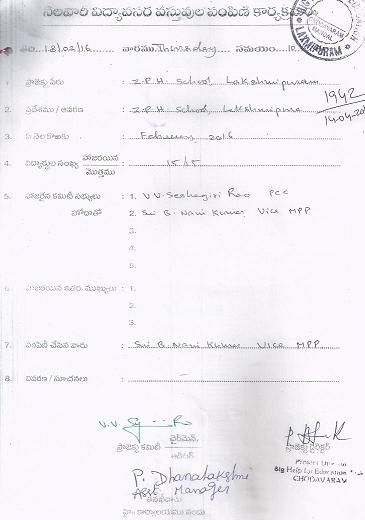 నెలవారి విద్యావసర వస్తువుల పంపిణీ కార్యక్రమం
తేది 18/02/16 వారము Thursday సమయం 10.
1. ప్రాజెక్టు పేరు : Z.P.H. School Lakshmipuram
2. ప్రదేశము / ఆవరణ : Z.P.H. School Lakshmipuram
1942
14-04-20
3. ఏ నెల కొఱకు : February 2016
4. విద్యార్థుల సంఖ్య హాజరయిన : 15/15
మొత్తము
5. హాజరైన కమిటీ సభ్యులు : 1. V.V. Seshagiri Rao PCC
హోదాతో 2. Sri B. Navi Kumar Vice MPP
3.
4.
5.
6. హాజరయిన ఇతర ముఖ్యులు : 1.
2.
3.
7. పంపిణీ చేసిన వారు : Sri B. Navi Kumar Vice MPP.
8. వివరణ / సూచనలు :
ప్రాజెక్టు కమిటీ ఛైర్మెన్,
ప్రాజెక్టు డైరెక్టర్
Project Director
Big Help for Education
CHODAVARAM
P. Dhanalakshmi
Asst. Manager